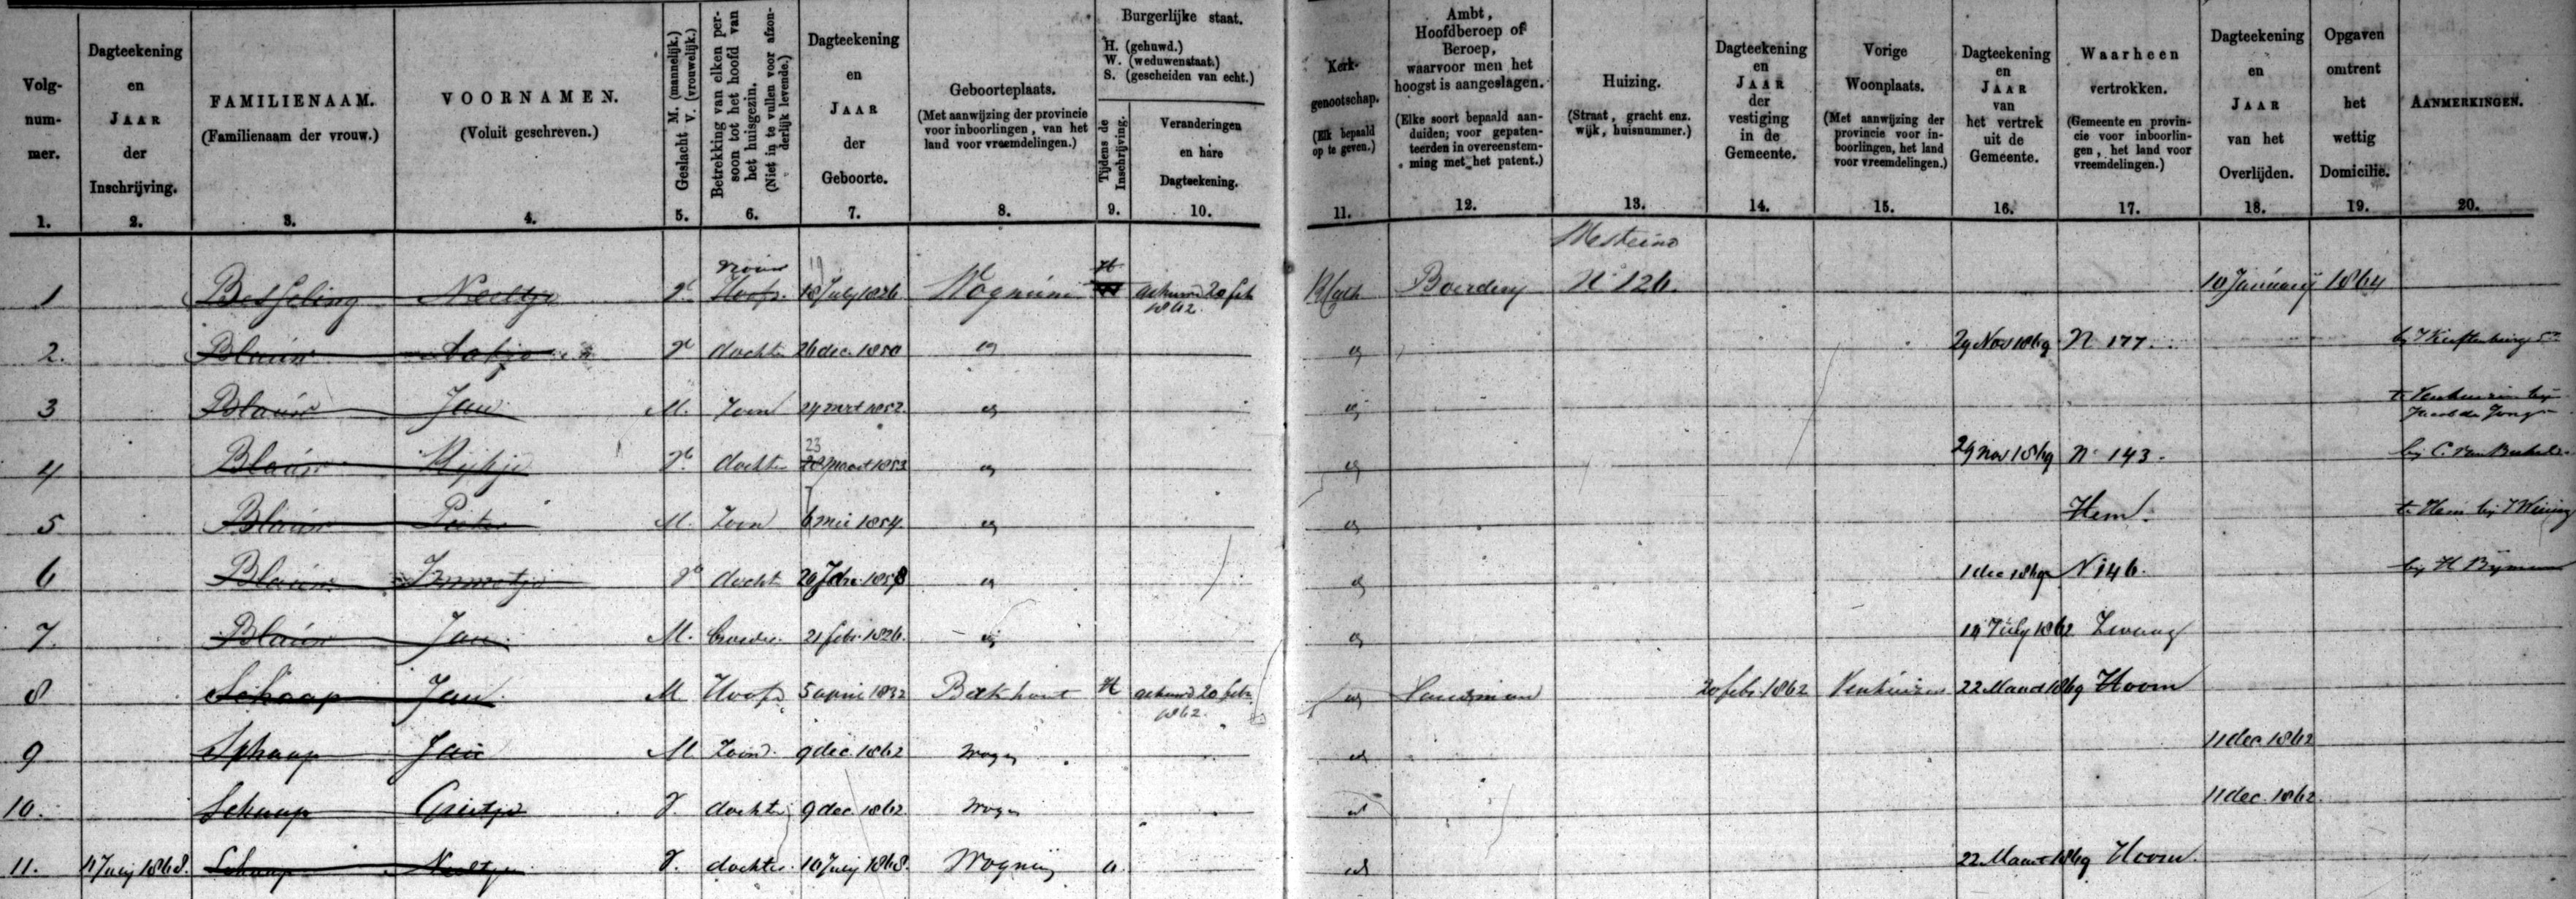 Volgnummer.
1.
Dagteekening en JAAR der Inschrijving.
2.
FAMILIENAAM.
(Familienaam der vrouw.)
3.
VOORNAMEN.
(Voluit geschreven.)
4.
Geslacht M. (mannelijk.) V. (vrouwelijk.)
5.
Betrekking van elken persoon tot het hoofd van het huisgezin.
(Niet in te vullen voor afzonderlijk levende.)
6.
Dagteekening en JAAR der Geboorte.
7.
Geboorteplaats.
(Met aanwijzing der provincie voor inboorlingen, van het land voor vreemdelingen.)
8.
Burgerlijke staat.
H. (gehuwd.)
W. (weduwenstaat.)
S. (gescheiden van echt.)
Tijdens de Inschrijving.
9.
Veranderingen en hare Dagteekening.
10.
Kerkgenootschap.
(Elk bepaald op te geven.)
11.
Ambt, Hoofdberoep of Beroep, waarvoor men het hoogst is aangeslagen.
(Elke soort bepaald aanduiden; voor gepatenteerden in overeenstemming met het patent.)
12.
Huizing.
(Straat, gracht enz. wijk, huisnummer.)
13.
Dagteekening en JAAR der vestiging in de Gemeente.
14.
Vorige Woonplaats.
(Met aanwijzing der provincie voor inboorlingen, het land voor vreemdelingen.)
15.
Dagteekening en JAAR van het vertrek uit de Gemeente.
16.
Waarheen vertrokken.
(Gemeente en provincie voor inboorlingen, het land voor vreemdelingen.)
17.
Dagteekening en JAAR van het Overlijden.
18.
Opgaven omtrent het wettig Domicilie.
19.
AANMERKINGEN.
20.
1 Besseling Neeltje Vr Hoofd 18 July 1826 Wognum H gehuwd 20 feb 1862 R Cath Boerderij N 126 10 January 1864
2. Blaúw dochter 26 dec. 1850 29 Nov 1869 N 177.
3 Blaúw Jan M. Zoon 1852
4 Blaúw dochter 23 maart 1853 29 nov 1869 N 143.
5 Blaúw Pieter M. Zoon 6 mei 1854. Hem. te Hem bij
6 Blaúw Immetje docht 1 dec 1869 N 146. bij H
7. Blaúw Jan M. broeder 21 febr. 1826. 10 July 1862 Zwaag
8 Schaap Jan M Hoofd 5 april 1832 Berkhout H gehuwd 20 febr. 1862. Landman 20 febr. 1862 Venhúizen 22 Maart 1869 Hoorn
9 Schaap Jan M Zoon 9 dec. 1862 11 dec. 1862
10. Schaap Grietje V. dochter 9 dec. 1862 11 dec. 1862.
11. 1868. Schaap Neeltje V. dochter 10 July 1868. 22 Maart 1869 Hoorn.